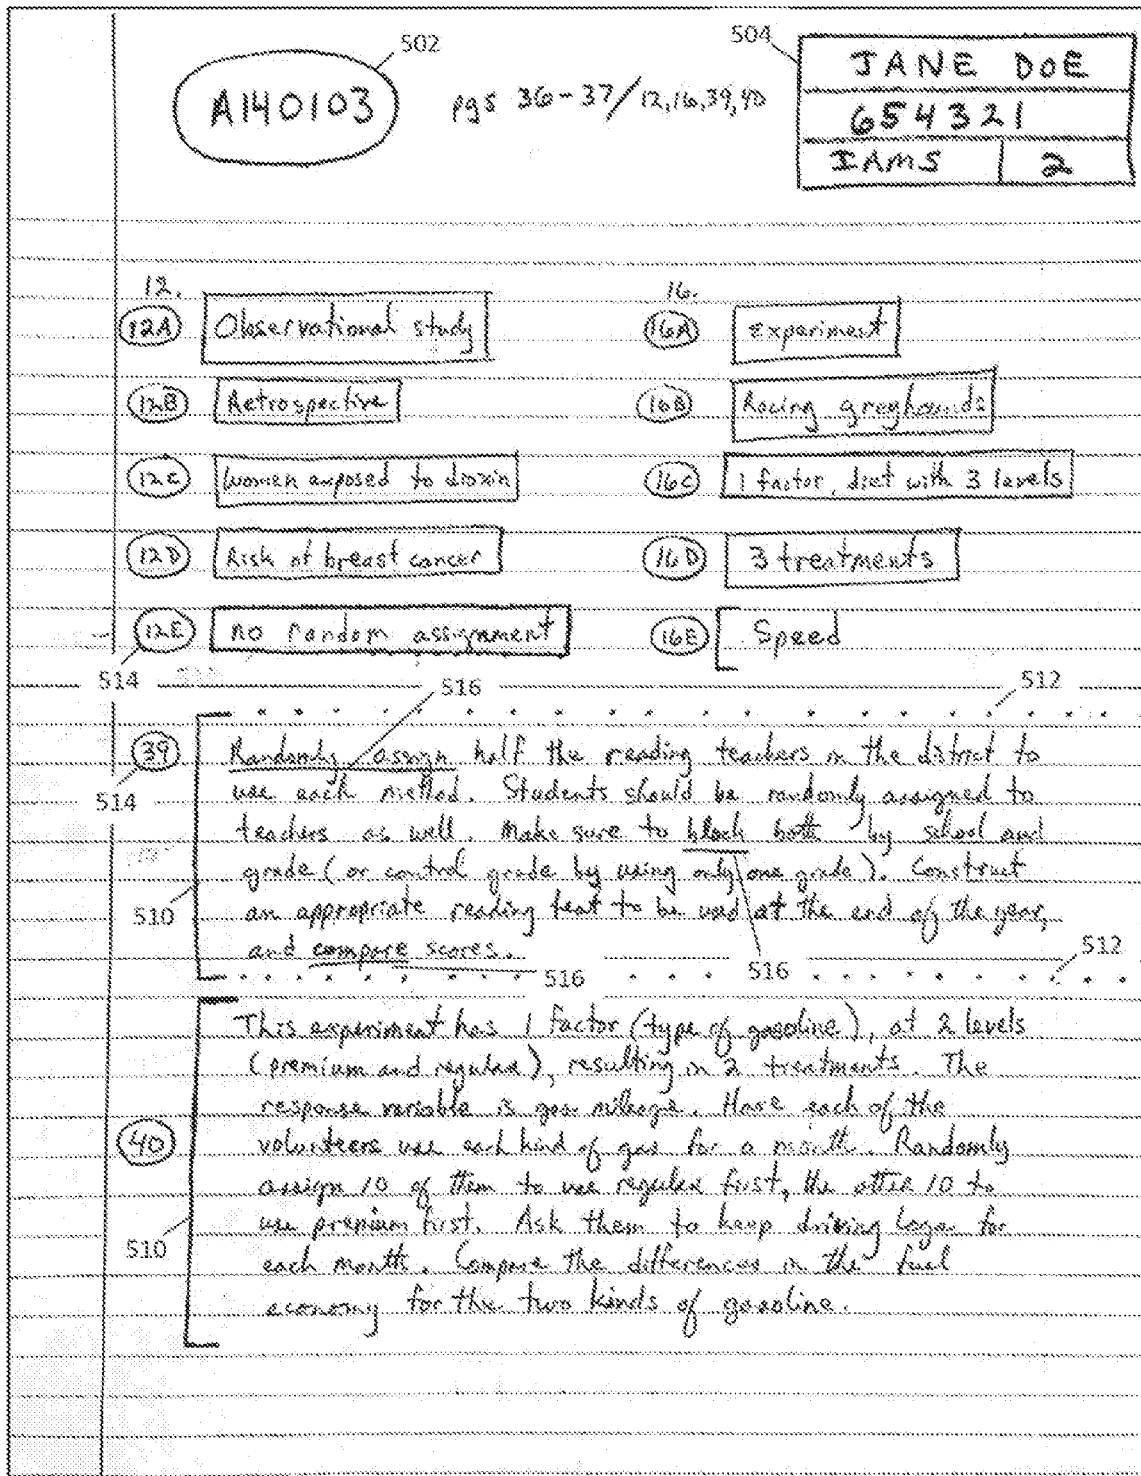 502
504
A140103
pgs 36-37/12,16,39,40
JANE DOE
654321
IAMS 2
12. 16.
12A Observational study 16A Experiment
12B Retrospective 16B Racing greyhounds
12C Women exposed to dioxin 16C 1 factor, diet with 3 levels
12D Risk of breast cancer 16D 3 treatments
12E no random assignment 16E Speed
514 516 512
39 Randomly assign half the reading teachers in the district to
514 use each method. Students should be randomly assigned to
teachers as well. Make sure to block both by school and
grade (or control grade by using only one grade). Construct
510 an appropriate reading test to be used at the end of the year,
and compare scores.
516 516 512
This experiment has 1 factor (type of gasoline), at 2 levels
(premium and regular), resulting in 2 treatments. The
response variable is gas mileage. Have each of the
40 volunteers use each kind of gas for a month. Randomly
assign 10 of them to use regular first, the other 10 to
510 use premium first. Ask them to keep driving logs for
each month. Compare the differences in the fuel
economy for the two kinds of gasoline.